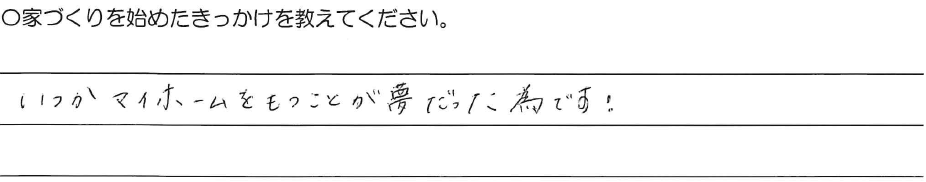 〇家づくりを始めたきっかけを教えてください。
いつかマイホームをもつことが夢だった為です!